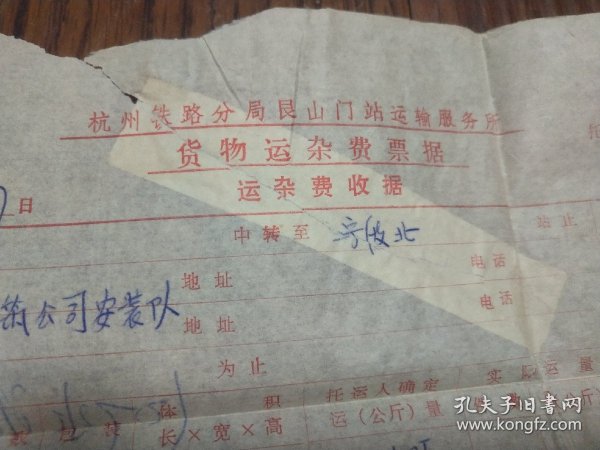 杭州铁路分局艮山门站运输服务所
货物运杂费票据
运杂费收据
日
中转至 宁波北 站止
地址 电话
筑公司安装队 地址 电话
为止
体积 托运人确定 实际运量
长×宽×高 运(公斤)量
孔夫子旧书网
www.kongfz.com